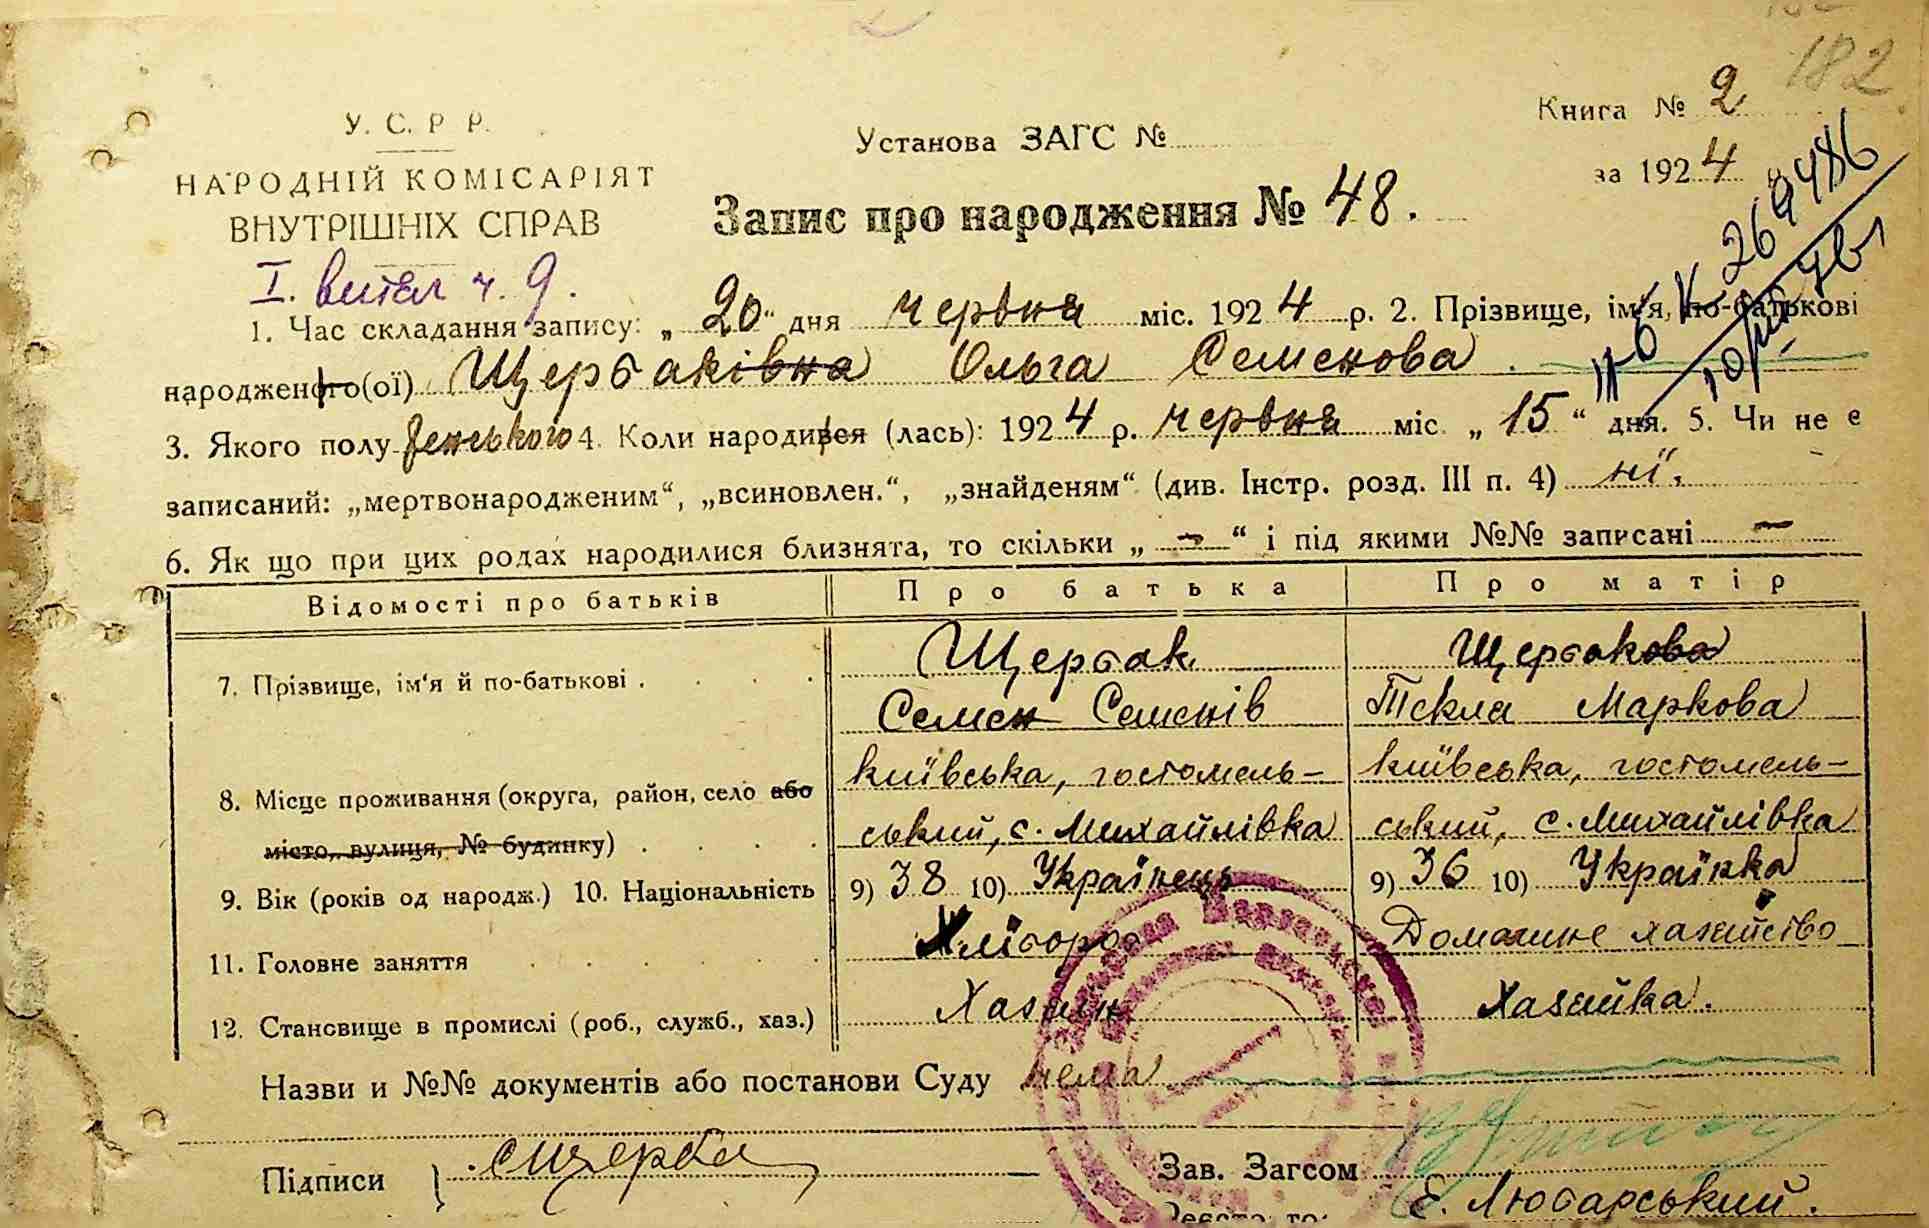 182
Книга № 2
У. С. Р Р.
Установа ЗАГС №
за 1924
НАРОДНІЙ КОМІСАРІЯТ
ВНУТРІШНІХ СПРАВ
Запис про народження № 48.
І. витяг ч. 9.
1. Час складання запису: „ 20 “ дня червня міс. 1924 р. 2. Прізвище, ім'я, по-батькові
народженого(ої) Щербаківна Ольга Семенова.
3. Якого полу женського 4. Коли народився (лась): 1924 р. червня міс. „ 15 “ дня. 5. Чи не є
записаний: „мертвонародженим“, „всиновлен.“, „знайденям“ (див. Інстр. розд. III п. 4) ні.
6. Як що при цих родах народилися близнята, то скільки „ – “ і під якими №№ записані –
Відомості про батьків Про батька Про матір
7. Прізвище, ім'я й по-батькові . Щербак Щербакова
Семен Семенів Текля Маркова
8. Місце проживання (округа, район, село або київська, гостомель- київська, гостомель-
місто, вулиця, № будинку) ський, с. Михайлівка ський, с. Михайлівка
9. Вік (років од народж.) 10. Національність 9) 38 10) Українець 9) 36 10) Українка
11. Головне заняття Хлібороб Домашнє хазяйство
12. Становище в промислі (роб., служб., хаз.) Хазяїн Хазяйка.
Назви и №№ документів або постанови Суду нема
Підписи Зав. Загсом
Е. Любарський.